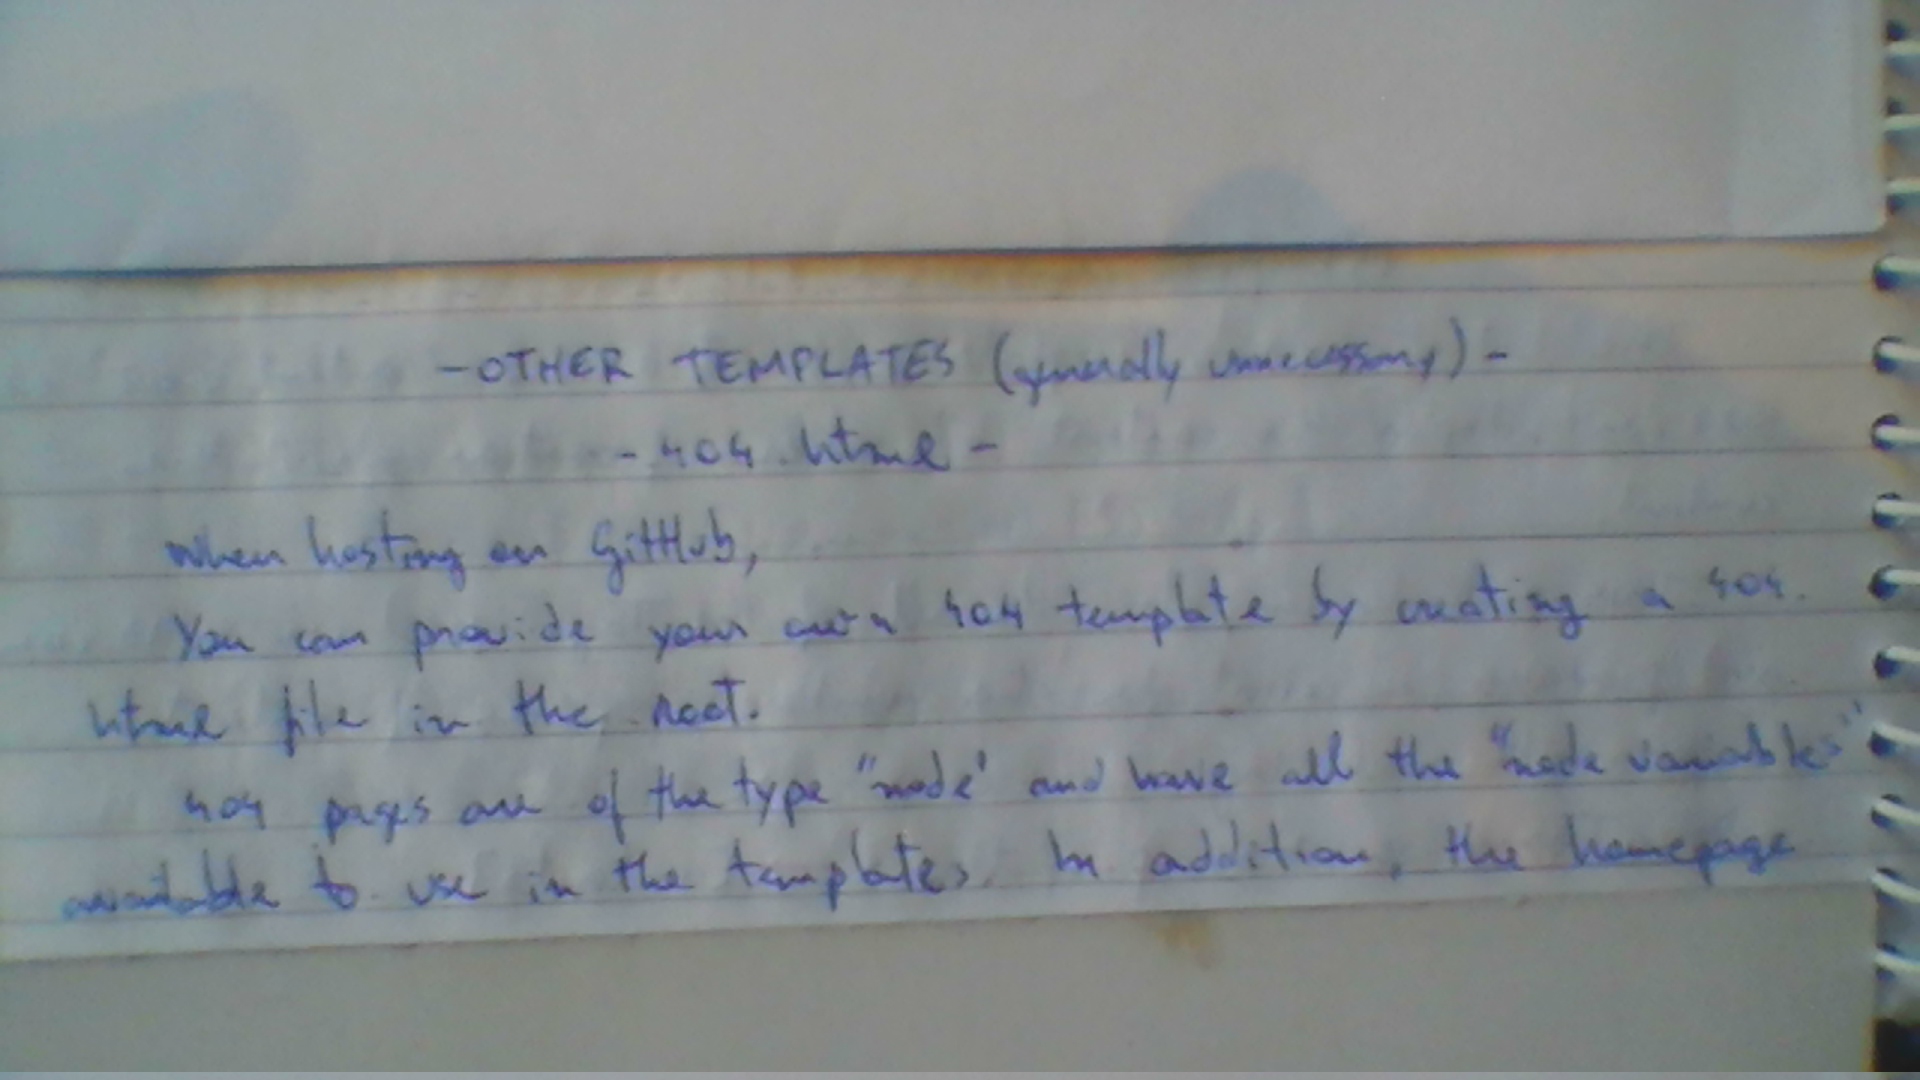 -OTHER TEMPLATES (generally unnecessary)-
- 404.html -
When hosting on GitHub,
You can provide your own 404 template by creating a 404.
html file in the root.
404 pages are of the type "node" and have all the "node variables"
available to use in the templates. In addition, the homepage